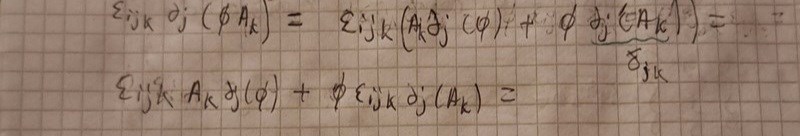 εijk ∂j (ϕAk) = εijk (Ak∂j (ϕ) + ϕ ∂j(Ak)) =
δjk
εijk Ak ∂j(ϕ) + ϕ εijk ∂j(Ak) =